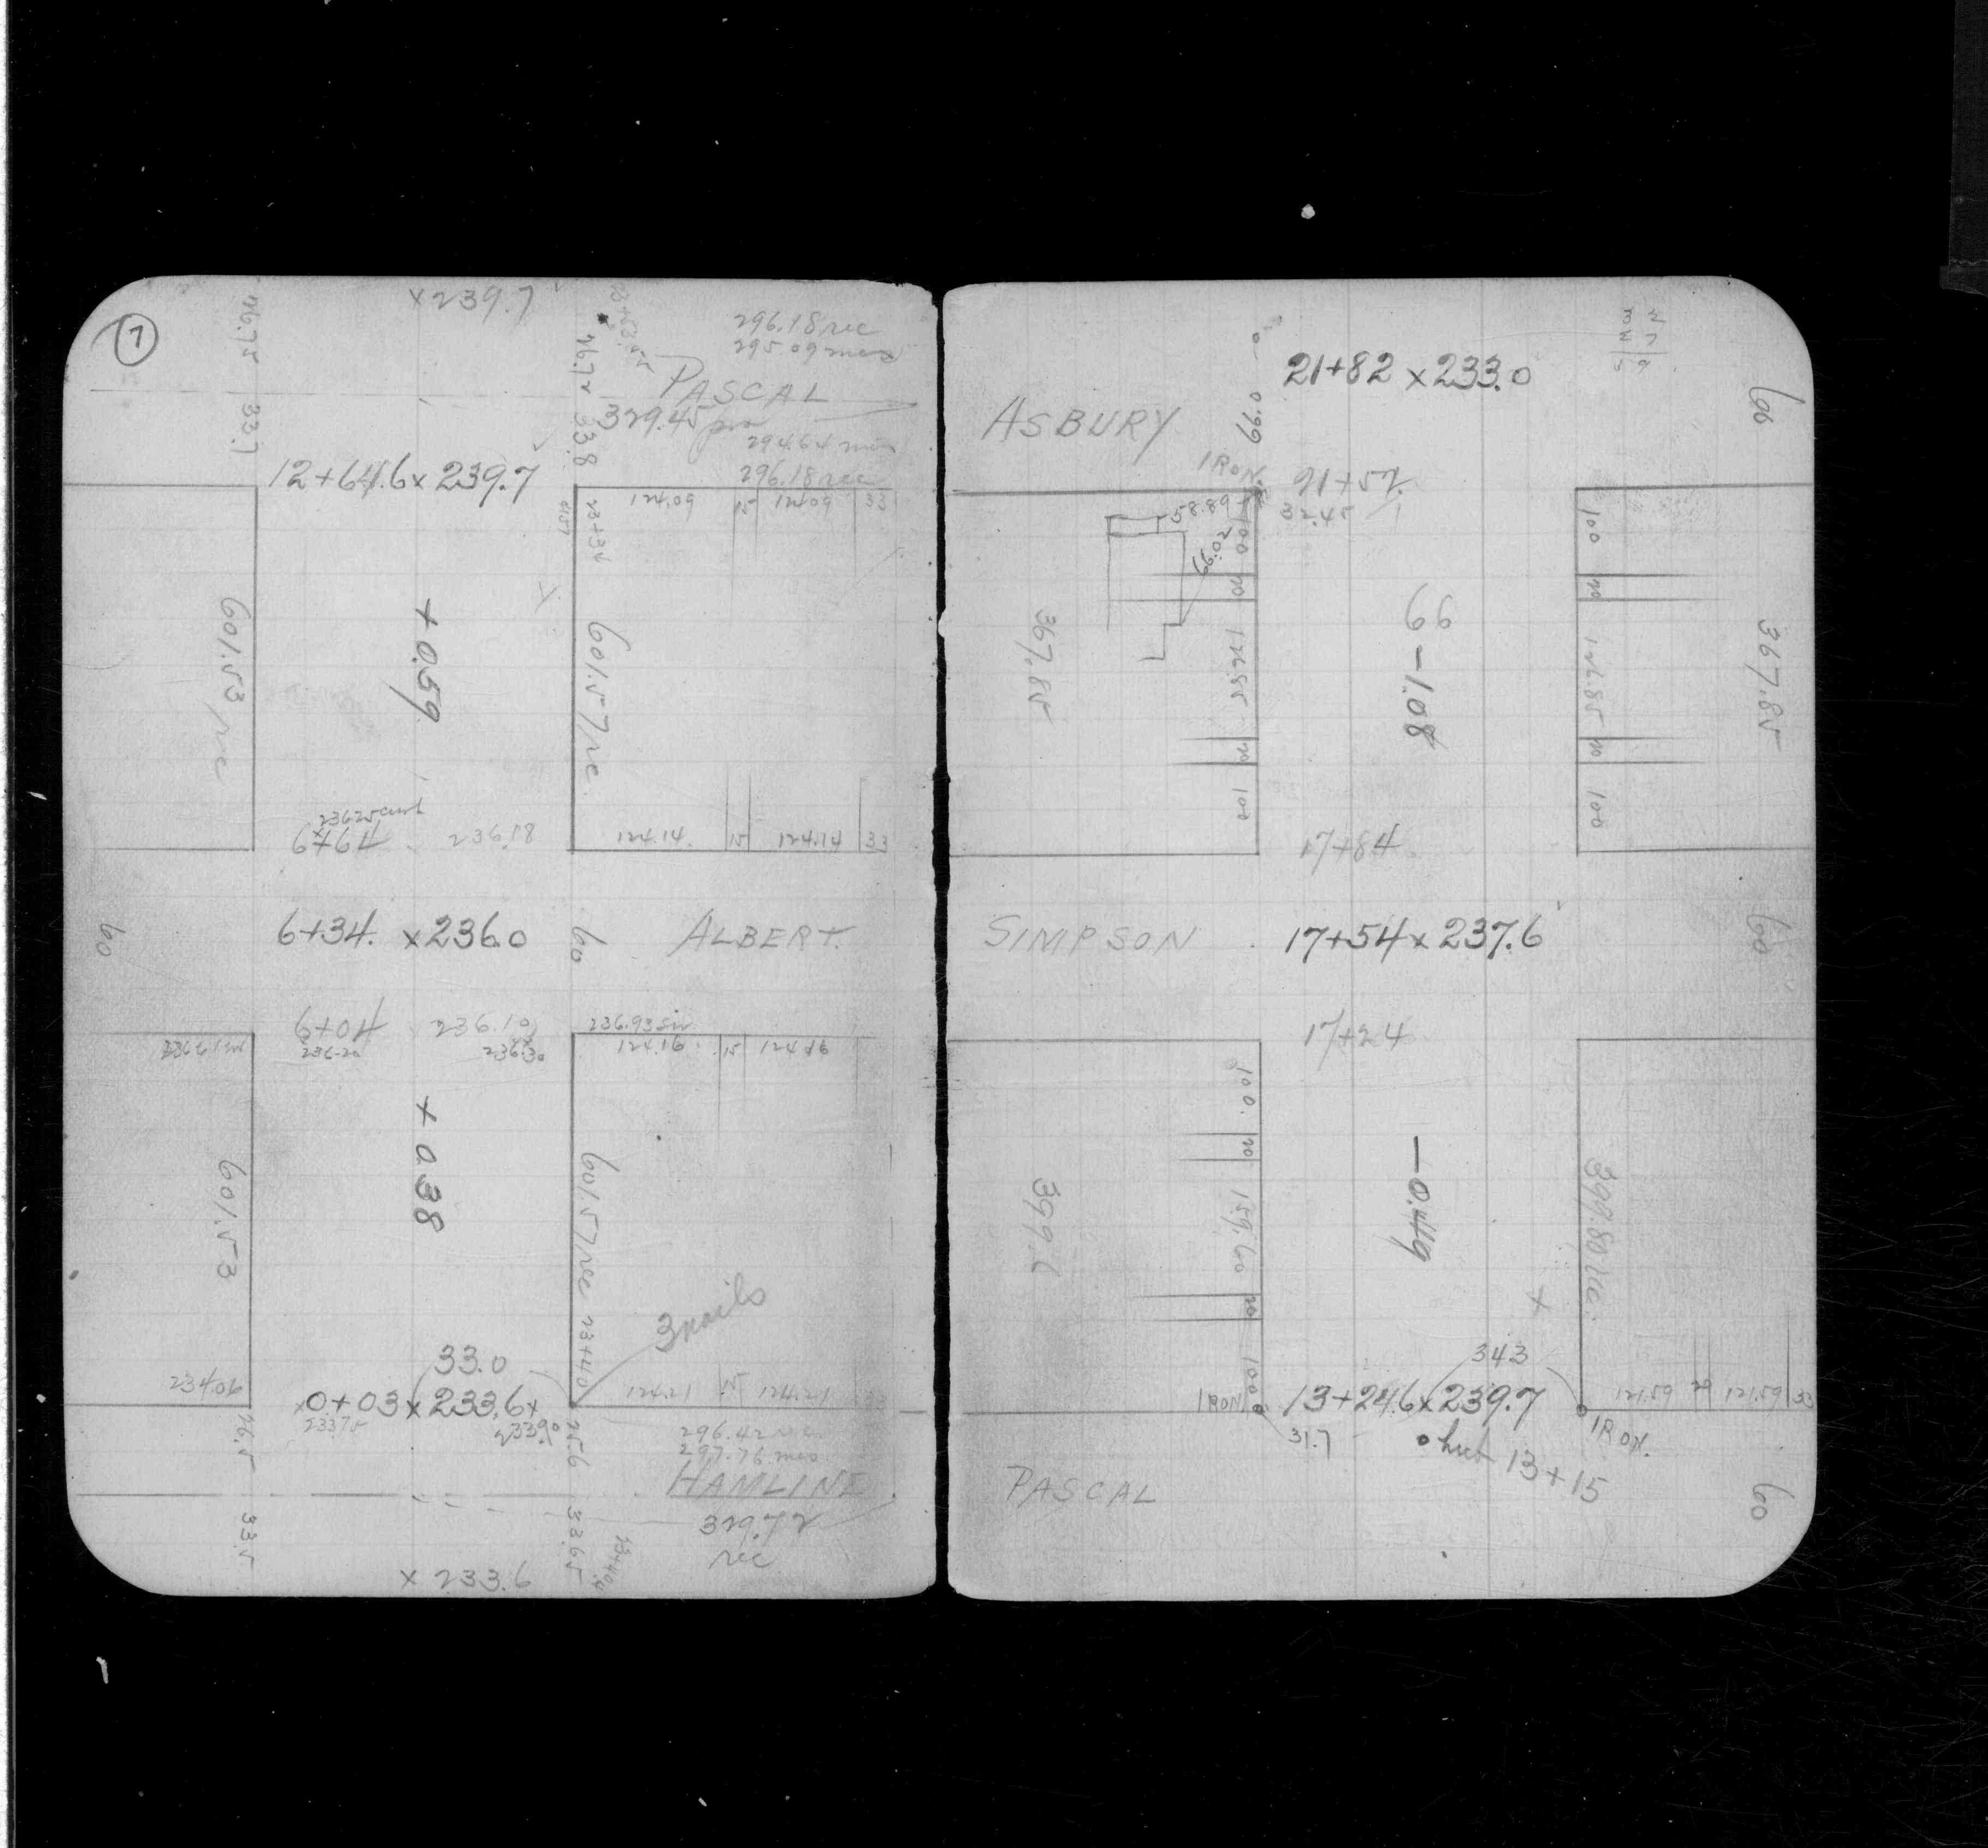 7
× 239.7
46.75
33.7
46.72
33.8
296.18 rec
295.09 meas
PASCAL
329.45
294.64 mea
296.18 rec
12+64.6 × 239.7
124.09 15 124.09 33
601.53 rec
+0.59
601.57 rec.
236.25 curb
6+64
236.18
124.14 15 124.14 33
60
6+34. × 236.0
60
ALBERT.
6+04
236.10
236.93
236.20
236.30
124.16 15 124.16
601.53
+0.38
601.57 rec
23+40
3 nails
33.0
234.06
0+03 × 233.6 ×
233.75
124.21 15 124.21 33
26.5
25.6
296.42 rec
297.76 mea
HAMLINE
33.5
33.65
329.72
rec
× 233.6
21+82 × 233.0
60
ASBURY
66.0
IRON
21+52
32.45
58.89
66.02
100
20
126.85
20
100
367.85
66
-1.08
100
20
126.85
20
100
367.85
17+84
SIMPSON
17+54 × 237.6
60
17+24
100.
20
159.60
20
100
399.6
-0.449
399.80 rec.
×
343
IRON
13+24.6 × 239.7
121.59 20 121.59 33
31.7
hub 13+15
IRON.
PASCAL
60